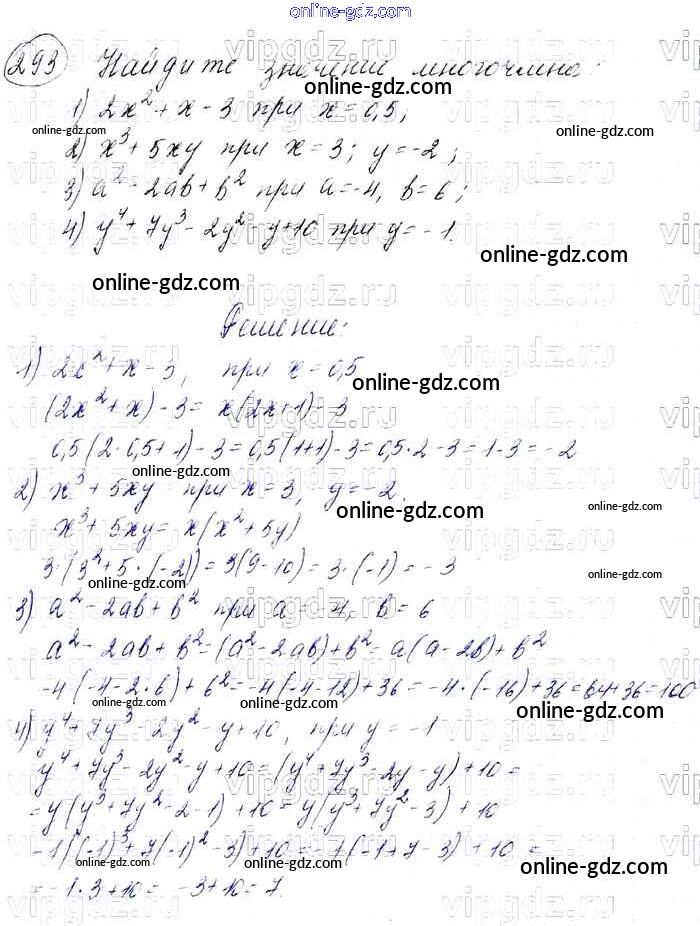 online-gdz.com
293 Найдите значение многочлена:
1) 2x² + x - 3 при x = 0,5;
2) x³ + 5xy при x = 3; y = -2;
3) a² - 2ab + b² при a = -4, b = 6;
4) y⁴ + 7y³ - 2y² - y + 10 при y = -1.
Решение:
1) 2x² + x - 3, при x = 0,5
(2x² + x) - 3 = x(2x+1) - 3
0,5(2·0,5+1) - 3 = 0,5(1+1) - 3 = 0,5·2 - 3 = 1-3 = -2
2) x³ + 5xy при x = 3, y = -2.
x³ + 5xy = x(x² + 5y)
3·(3² + 5·(-2)) = 3(9-10) = 3·(-1) = -3
3) a² - 2ab + b² при a = -4, b = 6
a² - 2ab + b² = (a² - 2ab) + b² = a(a - 2b) + b²
-4(-4-2·6) + 6² = -4(-4-12) + 36 = -4·(-16) + 36 = 64+36 = 100
4) y⁴ + 7y³ - 2y² - y + 10, при y = -1
y⁴ + 7y³ - 2y² - y + 10 = (y⁴ + 7y³ - 2y - y) + 10 =
= y(y³ + 7y² - 2 - 1) + 10 = y(y³ + 7y² - 3) + 10
-1((-1)³ + 7(-1)² - 3) + 10 = -1(-1+7-3) + 10 =
= -1·3 + 10 = -3 + 10 = 7.